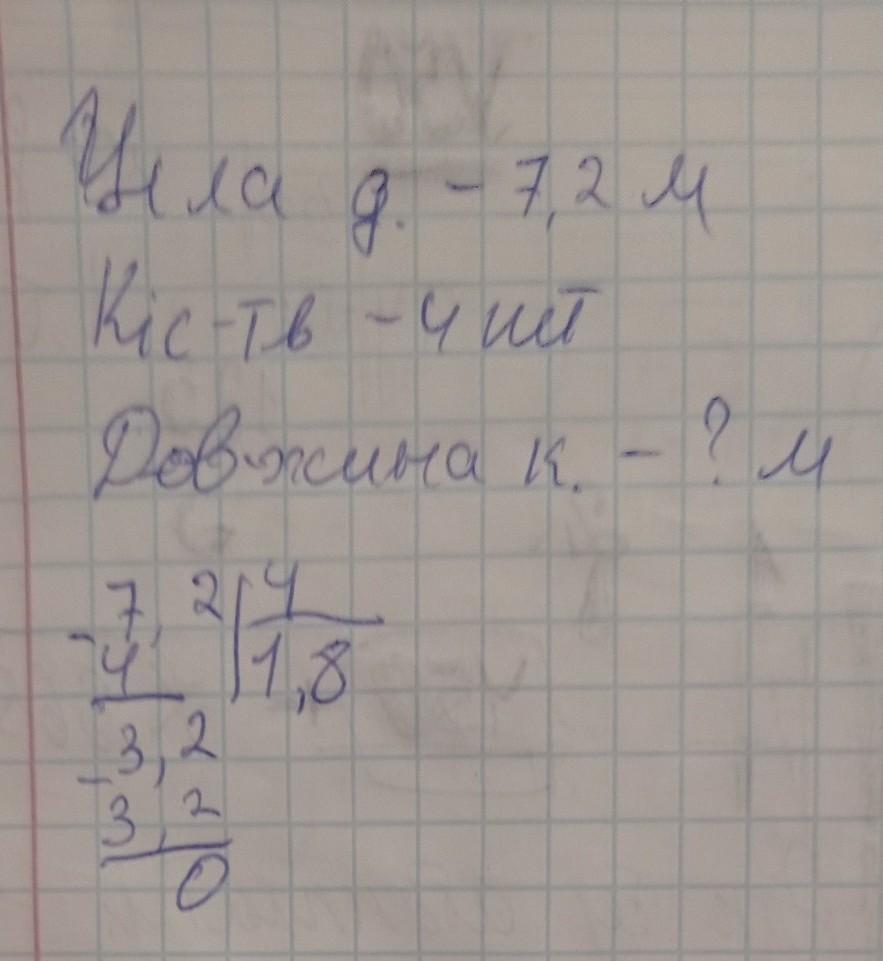 Ціла д. - 7,2 м
Кіс-тв - 4 шт
Довжина к. - ? м
- 7, 2 | 4
4 | 1,8
- 3, 2
3, 2
0